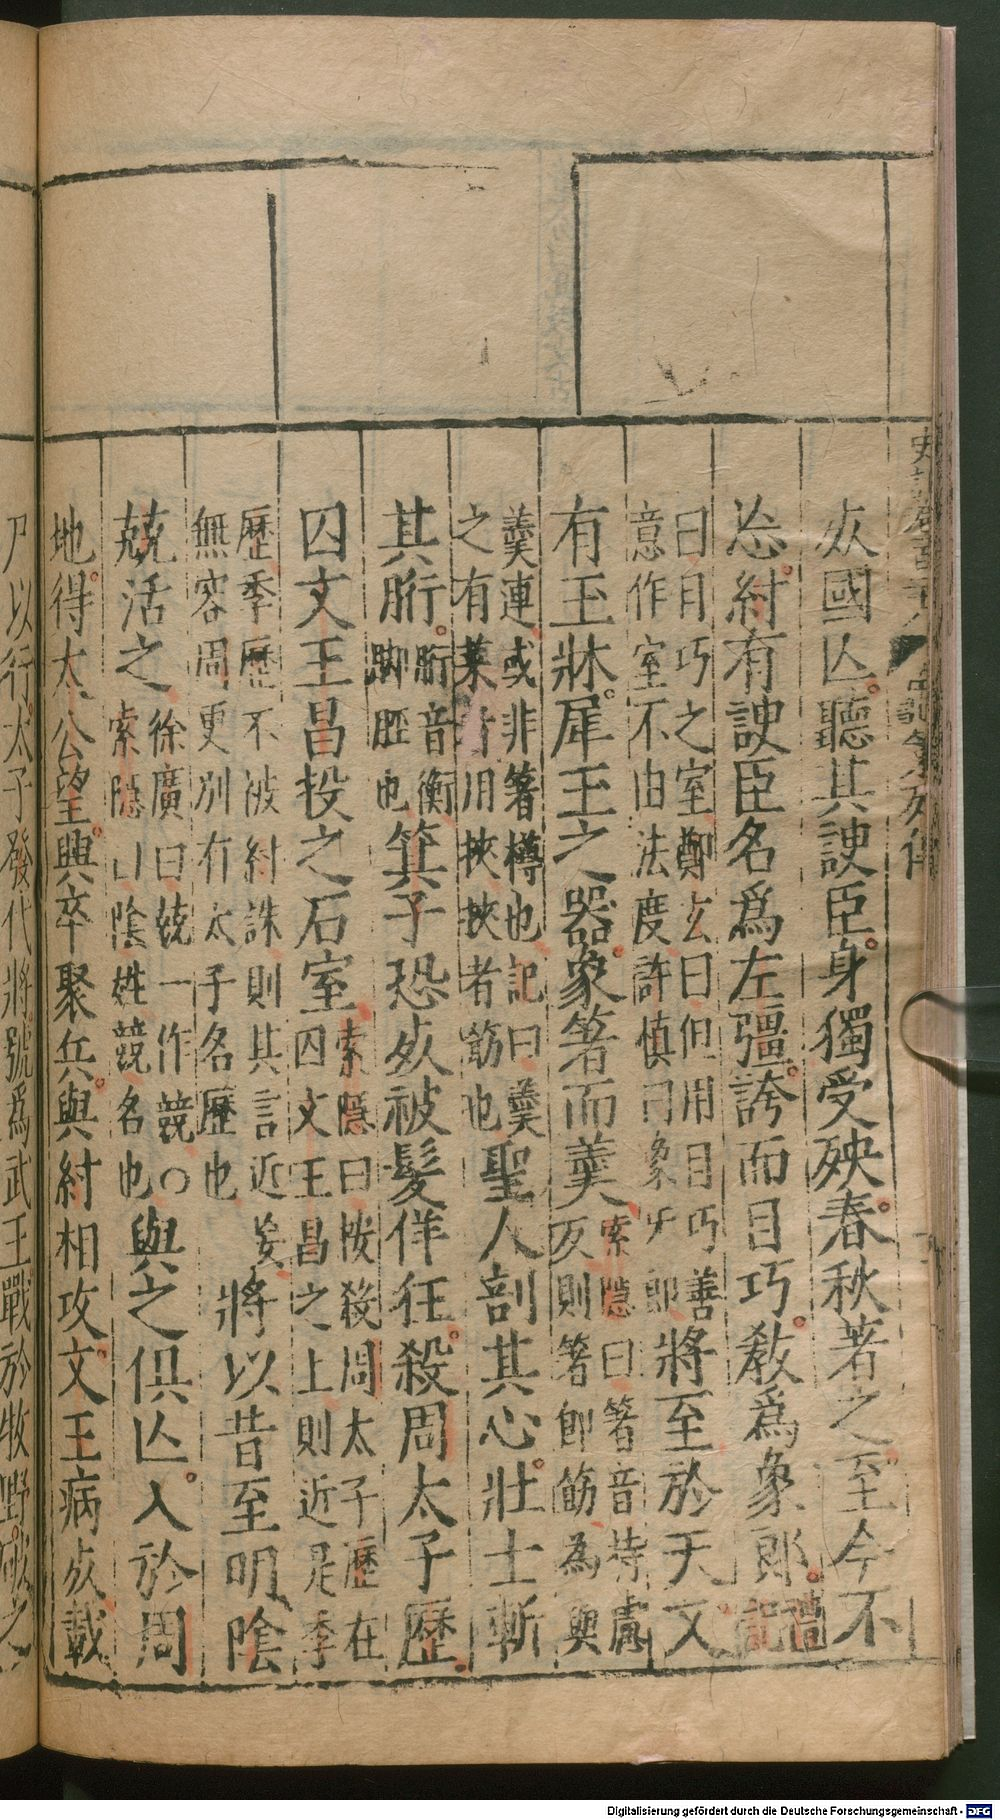 死國亡聽其諛臣身獨受殃春秋著之至今不
忘紂有諛臣名爲左彊誇而目巧教爲象郎禮記
曰目巧之室鄭玄曰但用目巧善
意作室不由法度許慎曰象牙郎
將至於天又
有玉牀犀玉之器象箸而羹索隱曰箸音持慮
反則箸即筯為與
羹連或非箸樽也記曰羹
之有菜者用挾挾者筯也
聖人剖其心壯士斬
其胻胻音衡
脚脛也
箕子恐死被髮佯狂殺周太子歷
囚文王昌投之石室索隱曰按殺周太子歷在
囚文王昌之上則近是季
歷季歷不被紂誅則其言近妄
無容周更別有太子名歷也
將以昔至明陰
兢活之徐廣曰兢一作競○
索隱曰陰姓競名也
與之俱亡入於周
地得太公望興卒聚兵與紂相攻文王病死載
尸以行太子發代將號爲武王戰於牧野破之